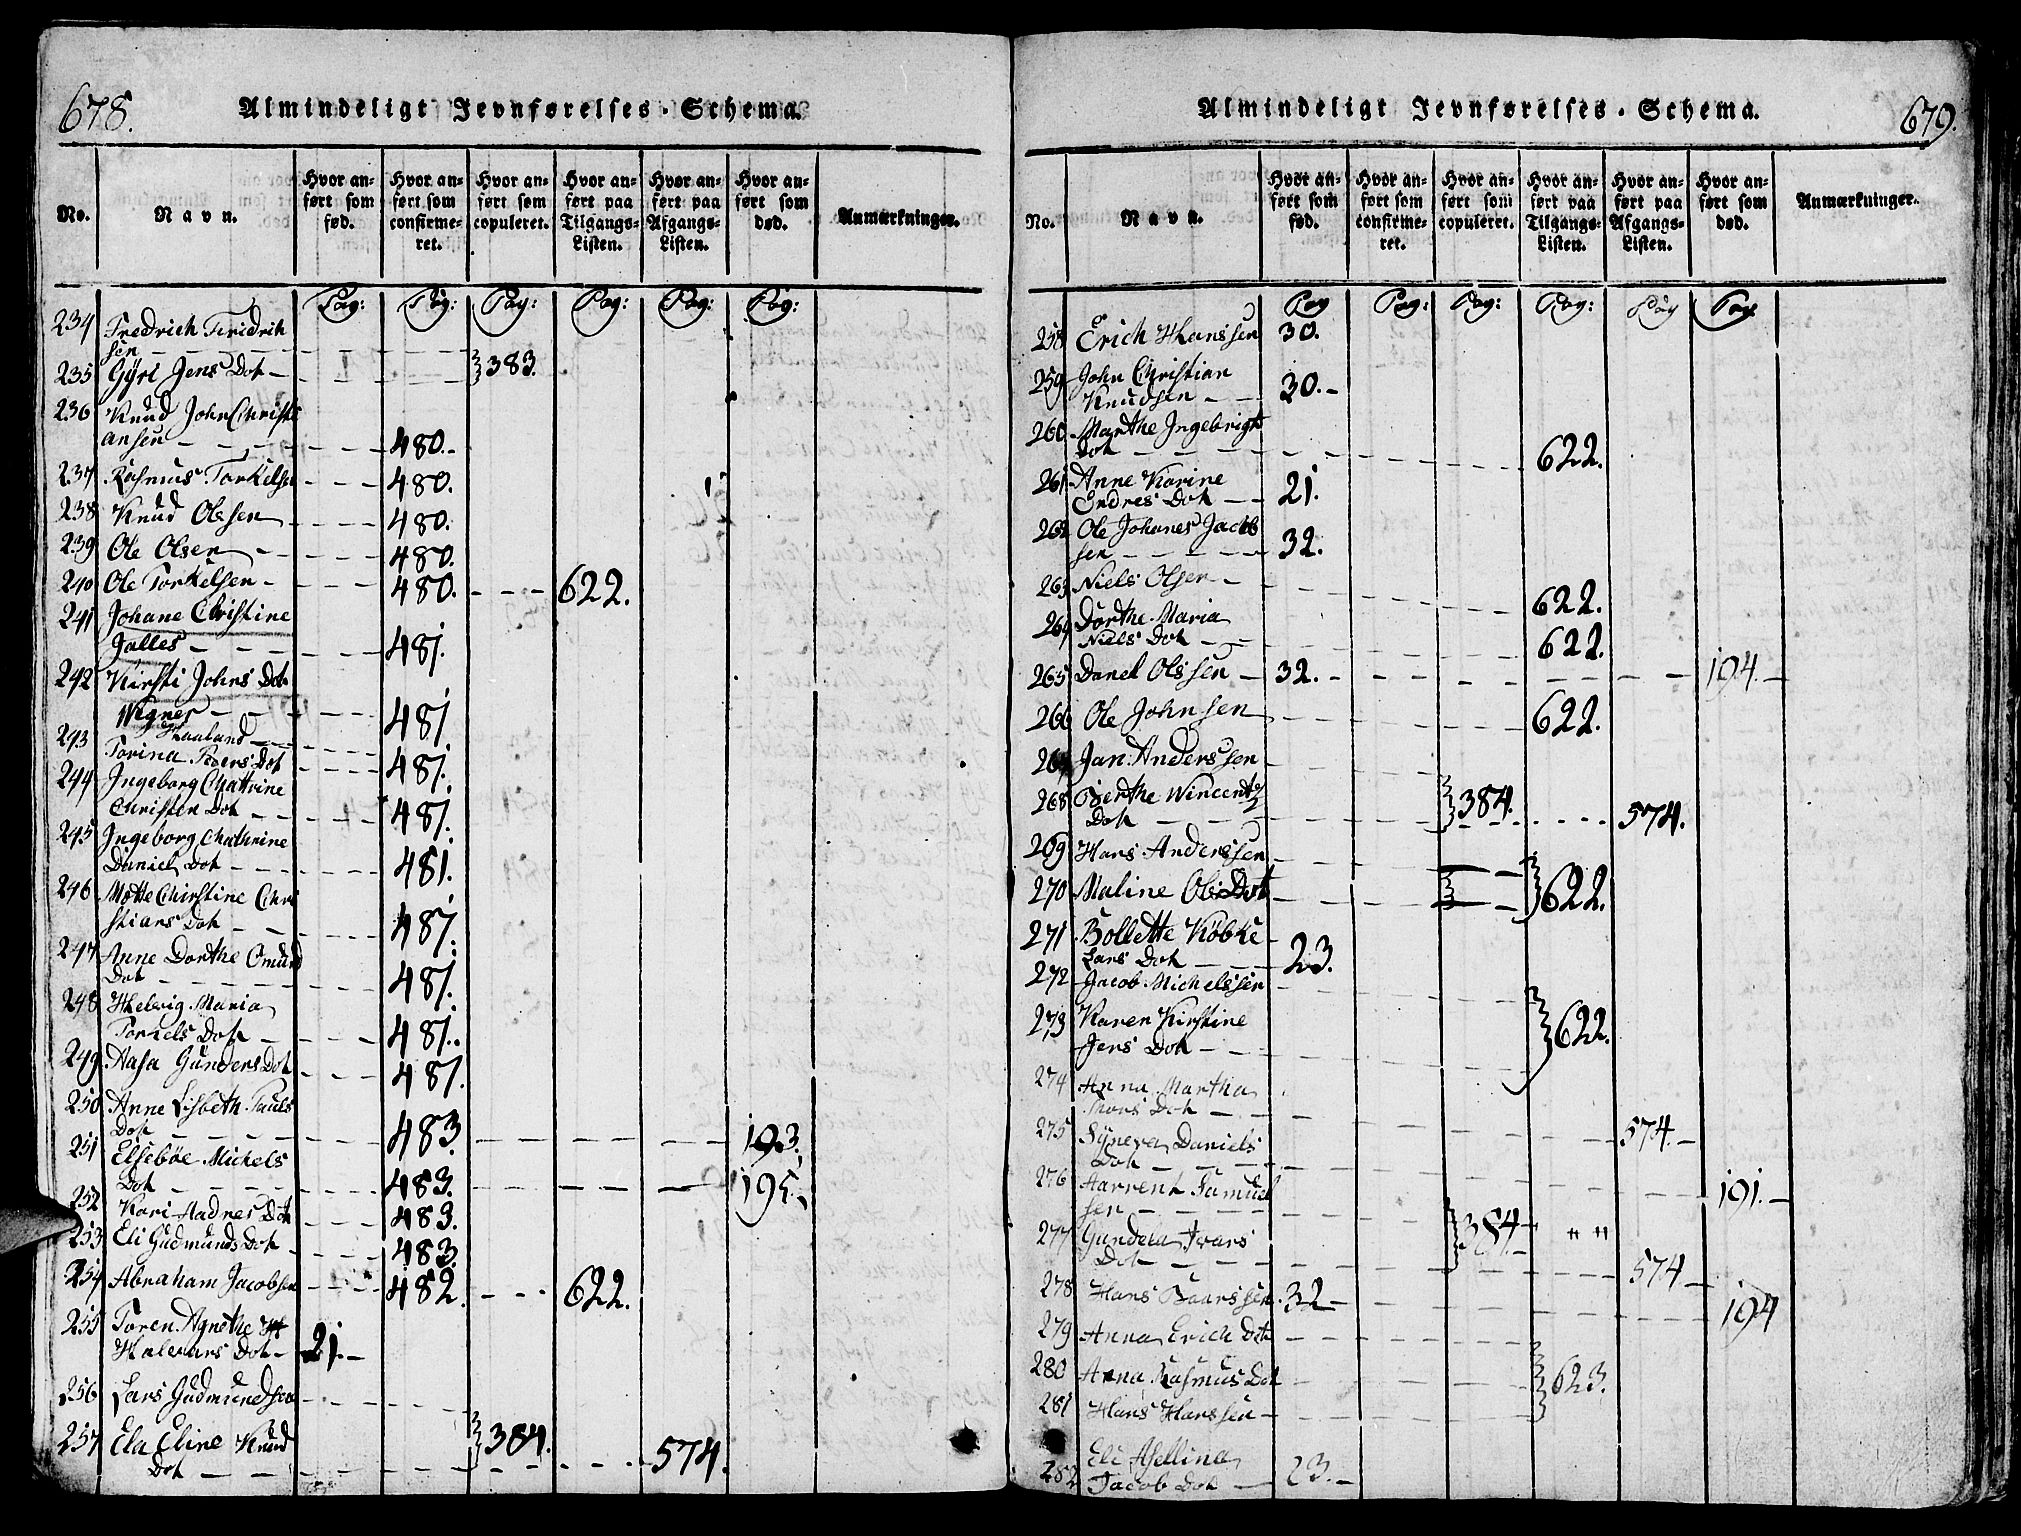 678.
Almindeligt Jevnførelses-Schema.
No.
Navn.
Hvor an-
ført som
fød.
Hvor an-
ført som
confirme-
ret.
Hvor an-
ført som
copuleret.
Hvor an-
ført paa
Tilgangs-
Listen.
Hvor an-
ført paa
Afgangs-
Listen.
Hvor an-
ført som
død.
Anmærkninger.
Pag: Pag: Pag: Pag: Pag: Pag:
234 Fredrich Fridrik
sen
235 Gÿri Jens Dot 383.
236 Knud John Christi
ansen 480.
237 Rasmus Torkelsen 480.
238 Knud Olssen 480.
239 Ole Olsen 480.
240 Ole Torkelsen 480. 622.
241 Johane Christine
Jalles 481.
242 Kirsti Johns Dot
Wegner 481
243 Haaland
Torina Peders Dot 481.
244 Ingeborg Chattrine
Christen Dot 481.
245 Ingeborg Chathrine
Daniel Dot 481.
246 Mette Chirstine Chri
stians Dot 481.
247 Anne Dorthe Omund
Dot 481.
248 Helevig Maria
Torkels Dot 481.
249 Aasa Gunders Dot 481.
250 Anne Lisbeth Pauls
Dot 483. 193.
251 Elsebøe Michels
Dot 483. 195.
252 Kari Aadnes Dot 483.
253 Eli Gudmunds Dot 483.
254 Abraham Jacobsen 482. 622.
255 Toren Agnethe
Halvars Dot 21.
256 Lars Gudmundsen
257 Ela Eline Knud
Dot 384. 574.
Almindeligt Jevnførelses-Schema.
679.
No.
Navn.
Hvor an-
ført som
fød.
Hvor an-
ført som
confirme-
ret.
Hvor an-
ført som
copuleret.
Hvor an-
ført paa
Tilgangs-
Listen.
Hvor an-
ført paa
Afgangs-
Listen.
Hvor an-
ført som
død.
Anmærkninger.
Pag Pag: Pag: Pag: Pag Pag.
258 Erich Hanssen 30.
259 John Christian
Knudsen 30.
260 Marthe Ingebrigt
Dot 622.
261 Anne Karine
Endres Dot 21.
262 Ole Johanes Jacob
sen 32.
263 Niels Olsen 622.
264 Dorthe Maria
Niels Dot 622.
265 Danel Olssen 32. 194.
266 Ole Johnsen 622.
267 Jan Anderssen
268 Berthe Wincentz
Dot 384. 574.
269 Hans Anderssen
270 Maline Ols Dot 622.
271 Bollette Købke
Lars Dot 23.
272 Jacob Michelssen
273 Karen Kirstine
Jens Dot 622.
274 Anna Martha
Thors Dot
275 Sÿneva Daniels
Dot 574.
276 Harrent Samuel
sen 191.
277 Gundela Ivars
Dot 384. 574
278 Hans Baarssen 32 194
279 Anna Erich Dot
280 Anna Rasmus Dot 623.
281 Hans Hanssen
282 Eli Asellina
Jacob Dot 23.